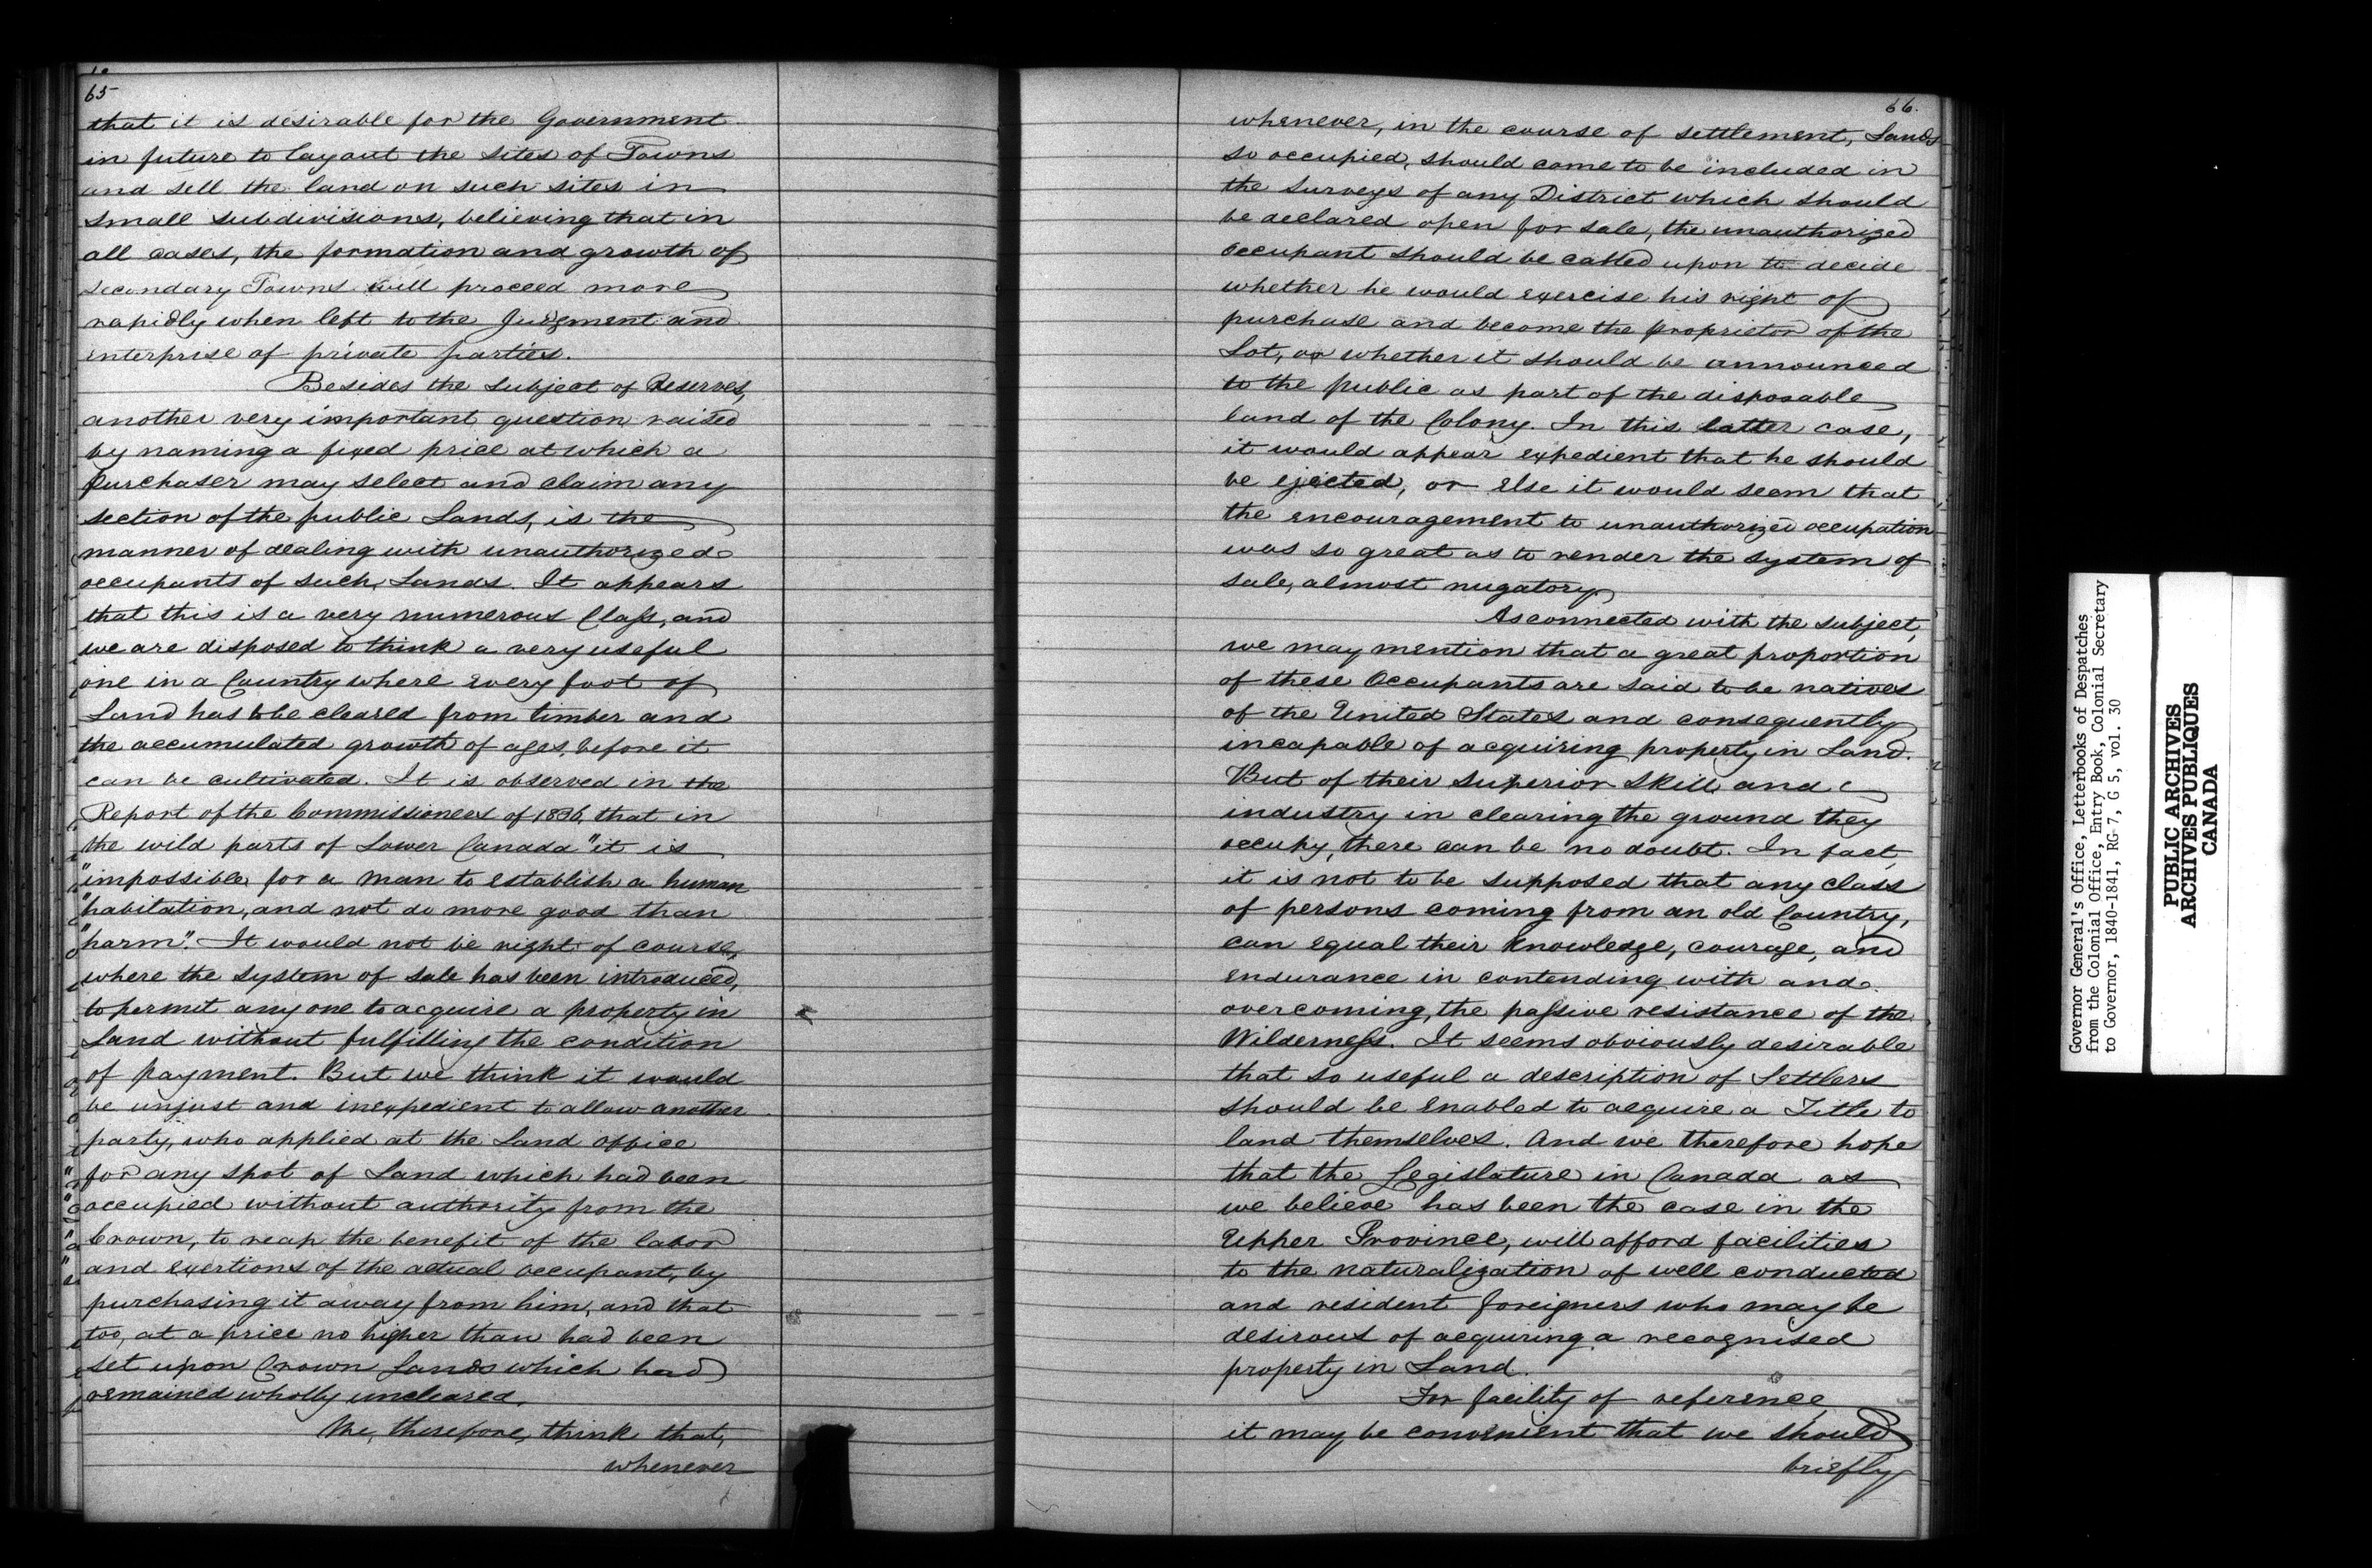 65
that it is desirable for the Government
in future to lay out the sites of Towns
and sell the land on such sites in
small subdivisions, believing that in
all cases, the formation and growth of
secondary Towns will proceed more
rapidly when left to the Judgment and
enterprise of private parties.
Besides the subject of Reserves,
another very important question raised
by naming a fixed price at which a
purchaser may select and claim any
section of the public Lands, is the
manner of dealing with unauthorized
occupants of such Lands. It appears
that this is a very numerous Class, and
we are disposed to think a very useful
one in a Country where every foot of
Land has to be cleared from timber and
the accumulated growth of ages, before it
can be cultivated. It is observed in the
Report of the Commissioners of 1836, that in
the wild parts of Lower Canada "it is
"impossible for a man to establish a human
"habitation, and not do more good than
"harm". It would not be right of course,
where the system of sale has been introduced,
to permit any one to acquire a property in
Land without fulfilling the condition
of payment. But we think it would
be unjust and inexpedient to allow another
party, who applied at the Land office
for any spot of Land which had been
occupied without authority from the
Crown, to reap the benefit of the labor
and exertions of the actual occupant, by
purchasing it away from him, and that
too, at a price no higher than had been
set upon Crown Lands which had
remained wholly uncleared.
We, therefore, think that,
whenever
66.
whenever, in the course of settlement, Lands
so occupied, should come to be included in
the surveys of any District which should
be declared open for sale, the unauthorized
occupant should be called upon to decide
whether he would exercise his right of
purchase and become the proprietor of the
Lot, or whether it should be announced
to the public as part of the disposable
land of the Colony. In this latter case,
it would appear expedient that he should
be ejected, or else it would seem that
the encouragement to unauthorized occupation
was so great as to render the system of
sale, almost nugatory.
As connected with the subject,
we may mention that a great proportion
of these Occupants are said to be natives
of the United States and consequently
incapable of acquiring property in Land.
But of their superior skill and
industry in clearing the ground they
occupy, there can be no doubt. In fact,
it is not to be supposed that any class
of persons coming from an old Country,
can equal their knowledge, courage, and
endurance in contending with and
overcoming, the passive resistance of the
Wilderness. It seems obviously desirable
that so useful a description of Settlers
should be enabled to acquire a Title to
land themselves. And we therefore hope
that the Legislature in Canada as
we believe has been the case in the
Upper Province, will afford facilities
to the naturalization of well conducted
and resident foreigners who may be
desirous of acquiring a recognised
property in Land.
For facility of reference
it may be convenient that we should
briefly
Governor General's Office, Letterbooks of Despatches
from the Colonial Office, Entry Book, Colonial Secretary
to Governor, 1840-1841, RG 7, G 5, vol. 30
PUBLIC ARCHIVES
ARCHIVES PUBLIQUES
CANADA